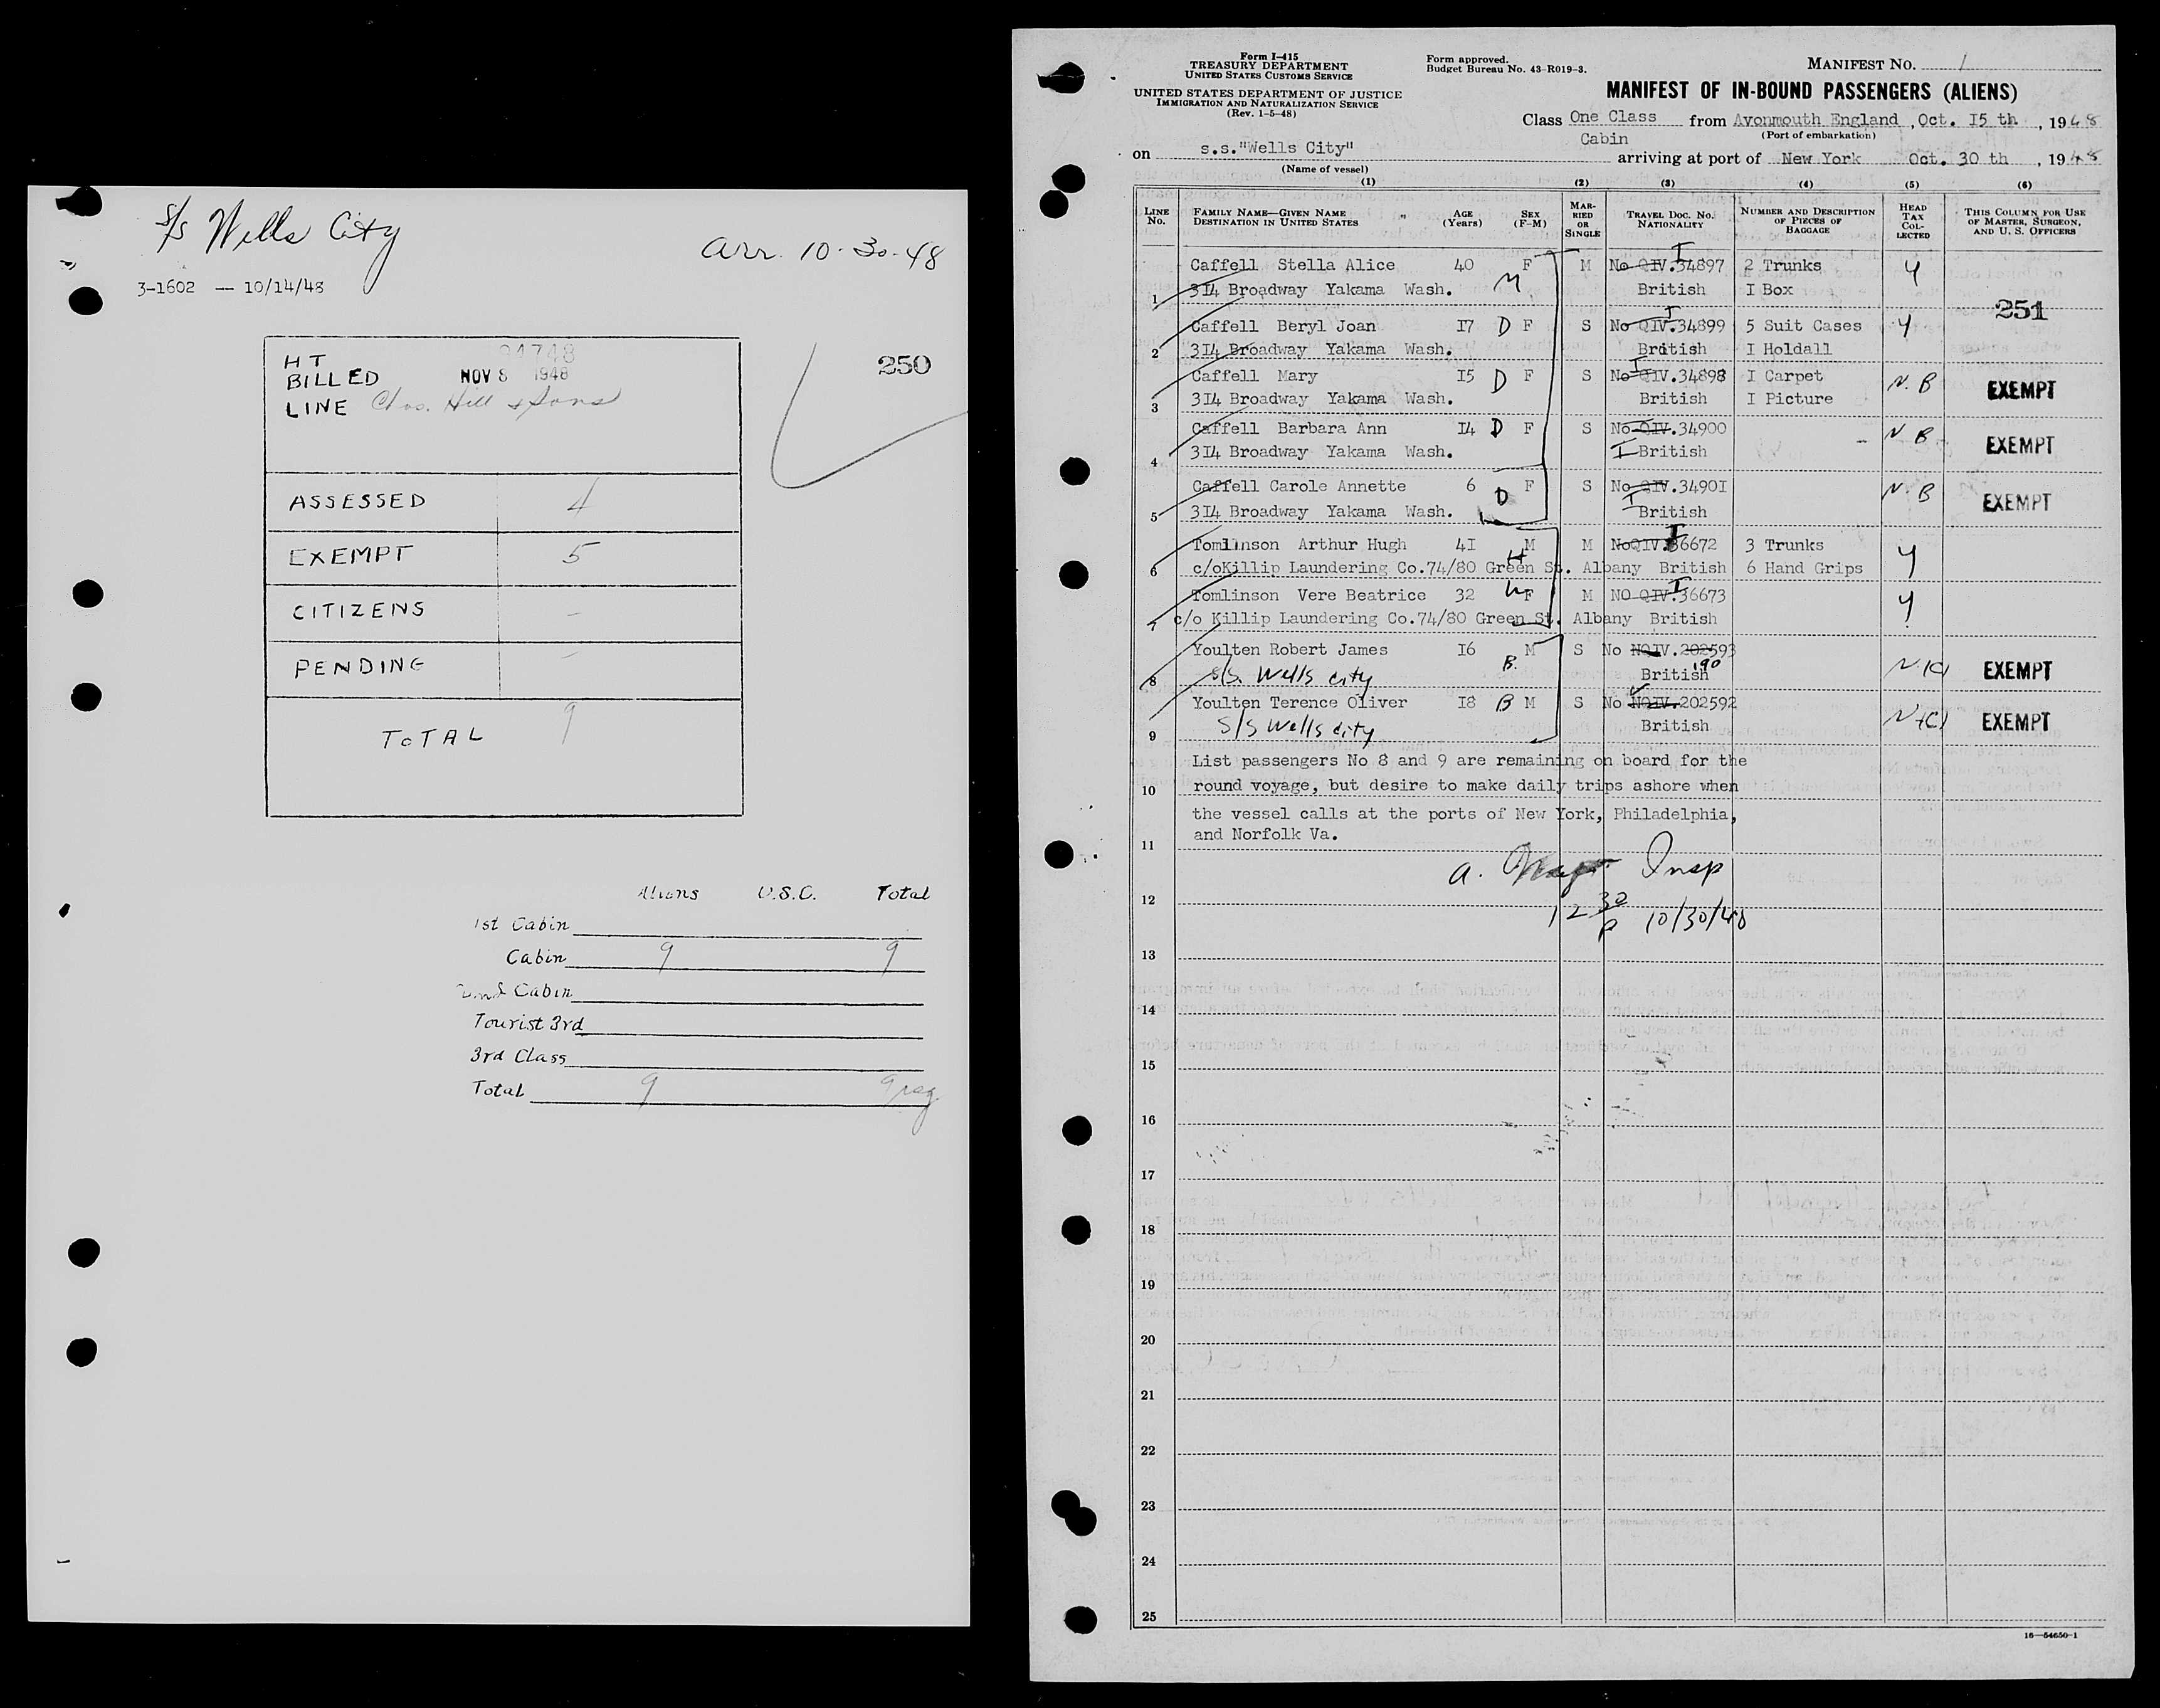 S/S Wells City
Arr. 10-30-48
3-1602 -- 10/14/48
250
HT
BILLED NOV 8 1948
LINE Chas. Hill & Sons
ASSESSED 4
EXEMPT 5
CITIZENS –
PENDING –
TOTAL 9
Aliens U.S.C. Total
1st Cabin
Cabin 9 9
Cabin
Tourist 3rd
3rd Class
Total 9 9
Form I-415
TREASURY DEPARTMENT
UNITED STATES CUSTOMS SERVICE
UNITED STATES DEPARTMENT OF JUSTICE
IMMIGRATION AND NATURALIZATION SERVICE
(Rev. 1-5-48)
Form approved.
Budget Bureau No. 43-R019-3.
MANIFEST NO. 1
MANIFEST OF IN-BOUND PASSENGERS (ALIENS)
Class One Class from Avonmouth England, Oct. I5 th, 1948
Cabin (Port of embarkation)
on s.s."Wells City" arriving at port of New York Oct. 30 th, 1948
(Name of vessel)
(1) (2) (3) (4) (5) (6)
LINE No. FAMILY NAME—GIVEN NAME DESTINATION IN UNITED STATES " AGE (Years) SEX (F-M) MARRIED OR SINGLE TRAVEL DOC. No. NATIONALITY NUMBER AND DESCRIPTION OF PIECES OF BAGGAGE HEAD TAX COLLECTED THIS COLUMN FOR USE OF MASTER, SURGEON, AND U. S. OFFICERS
Caffell Stella Alice 40 F M No QIV.34897 I 2 Trunks Y
1 3I4 Broadway Yakama Wash. M British I Box
251
Caffell Beryl Joan I7 D F S No QIV.34899 I 5 Suit Cases Y
2 3I4 Broadway Yakama Wash. British I Holdall
Caffell Mary I5 D F S No QIV.34898 I I Carpet N.B EXEMPT
3 3I4 Broadway Yakama Wash. British I Picture
Caffell Barbara Ann I4 D F S No QIV.34900 N B EXEMPT
4 3I4 Broadway Yakama Wash. I British
Caffell Carole Annette 6 D F S No QIV.3490I N.B EXEMPT
5 3I4 Broadway Yakama Wash. I British
Tomlinson Arthur Hugh 4I M M NoQIV.36672 I 3 Trunks Y
6 c/oKillip Laundering Co.74/80 Green St. Albany British 6 Hand Grips
H
Tomlinson Vere Beatrice 32 W F M NO QIV.36673 I Y
7 c/o Killip Laundering Co.74/80 Green St. Albany British
Youlten Robert James I6 B. M S No NQIV.202593 EXEMPT
8 S/S. Wells City British
Youlten Terence Oliver I8 B M S No NQIV.202592 EXEMPT
9 S/S Wells City British
List passengers No 8 and 9 are remaining on board for the
10 round voyage, but desire to make daily trips ashore when
the vessel calls at the ports of New York, Philadelphia,
and Norfolk Va.
11
A. Insp
12
12 30 p 10/30/48
13
14
15
16
17
18
19
20
21
22
23
24
25
16—54650-1